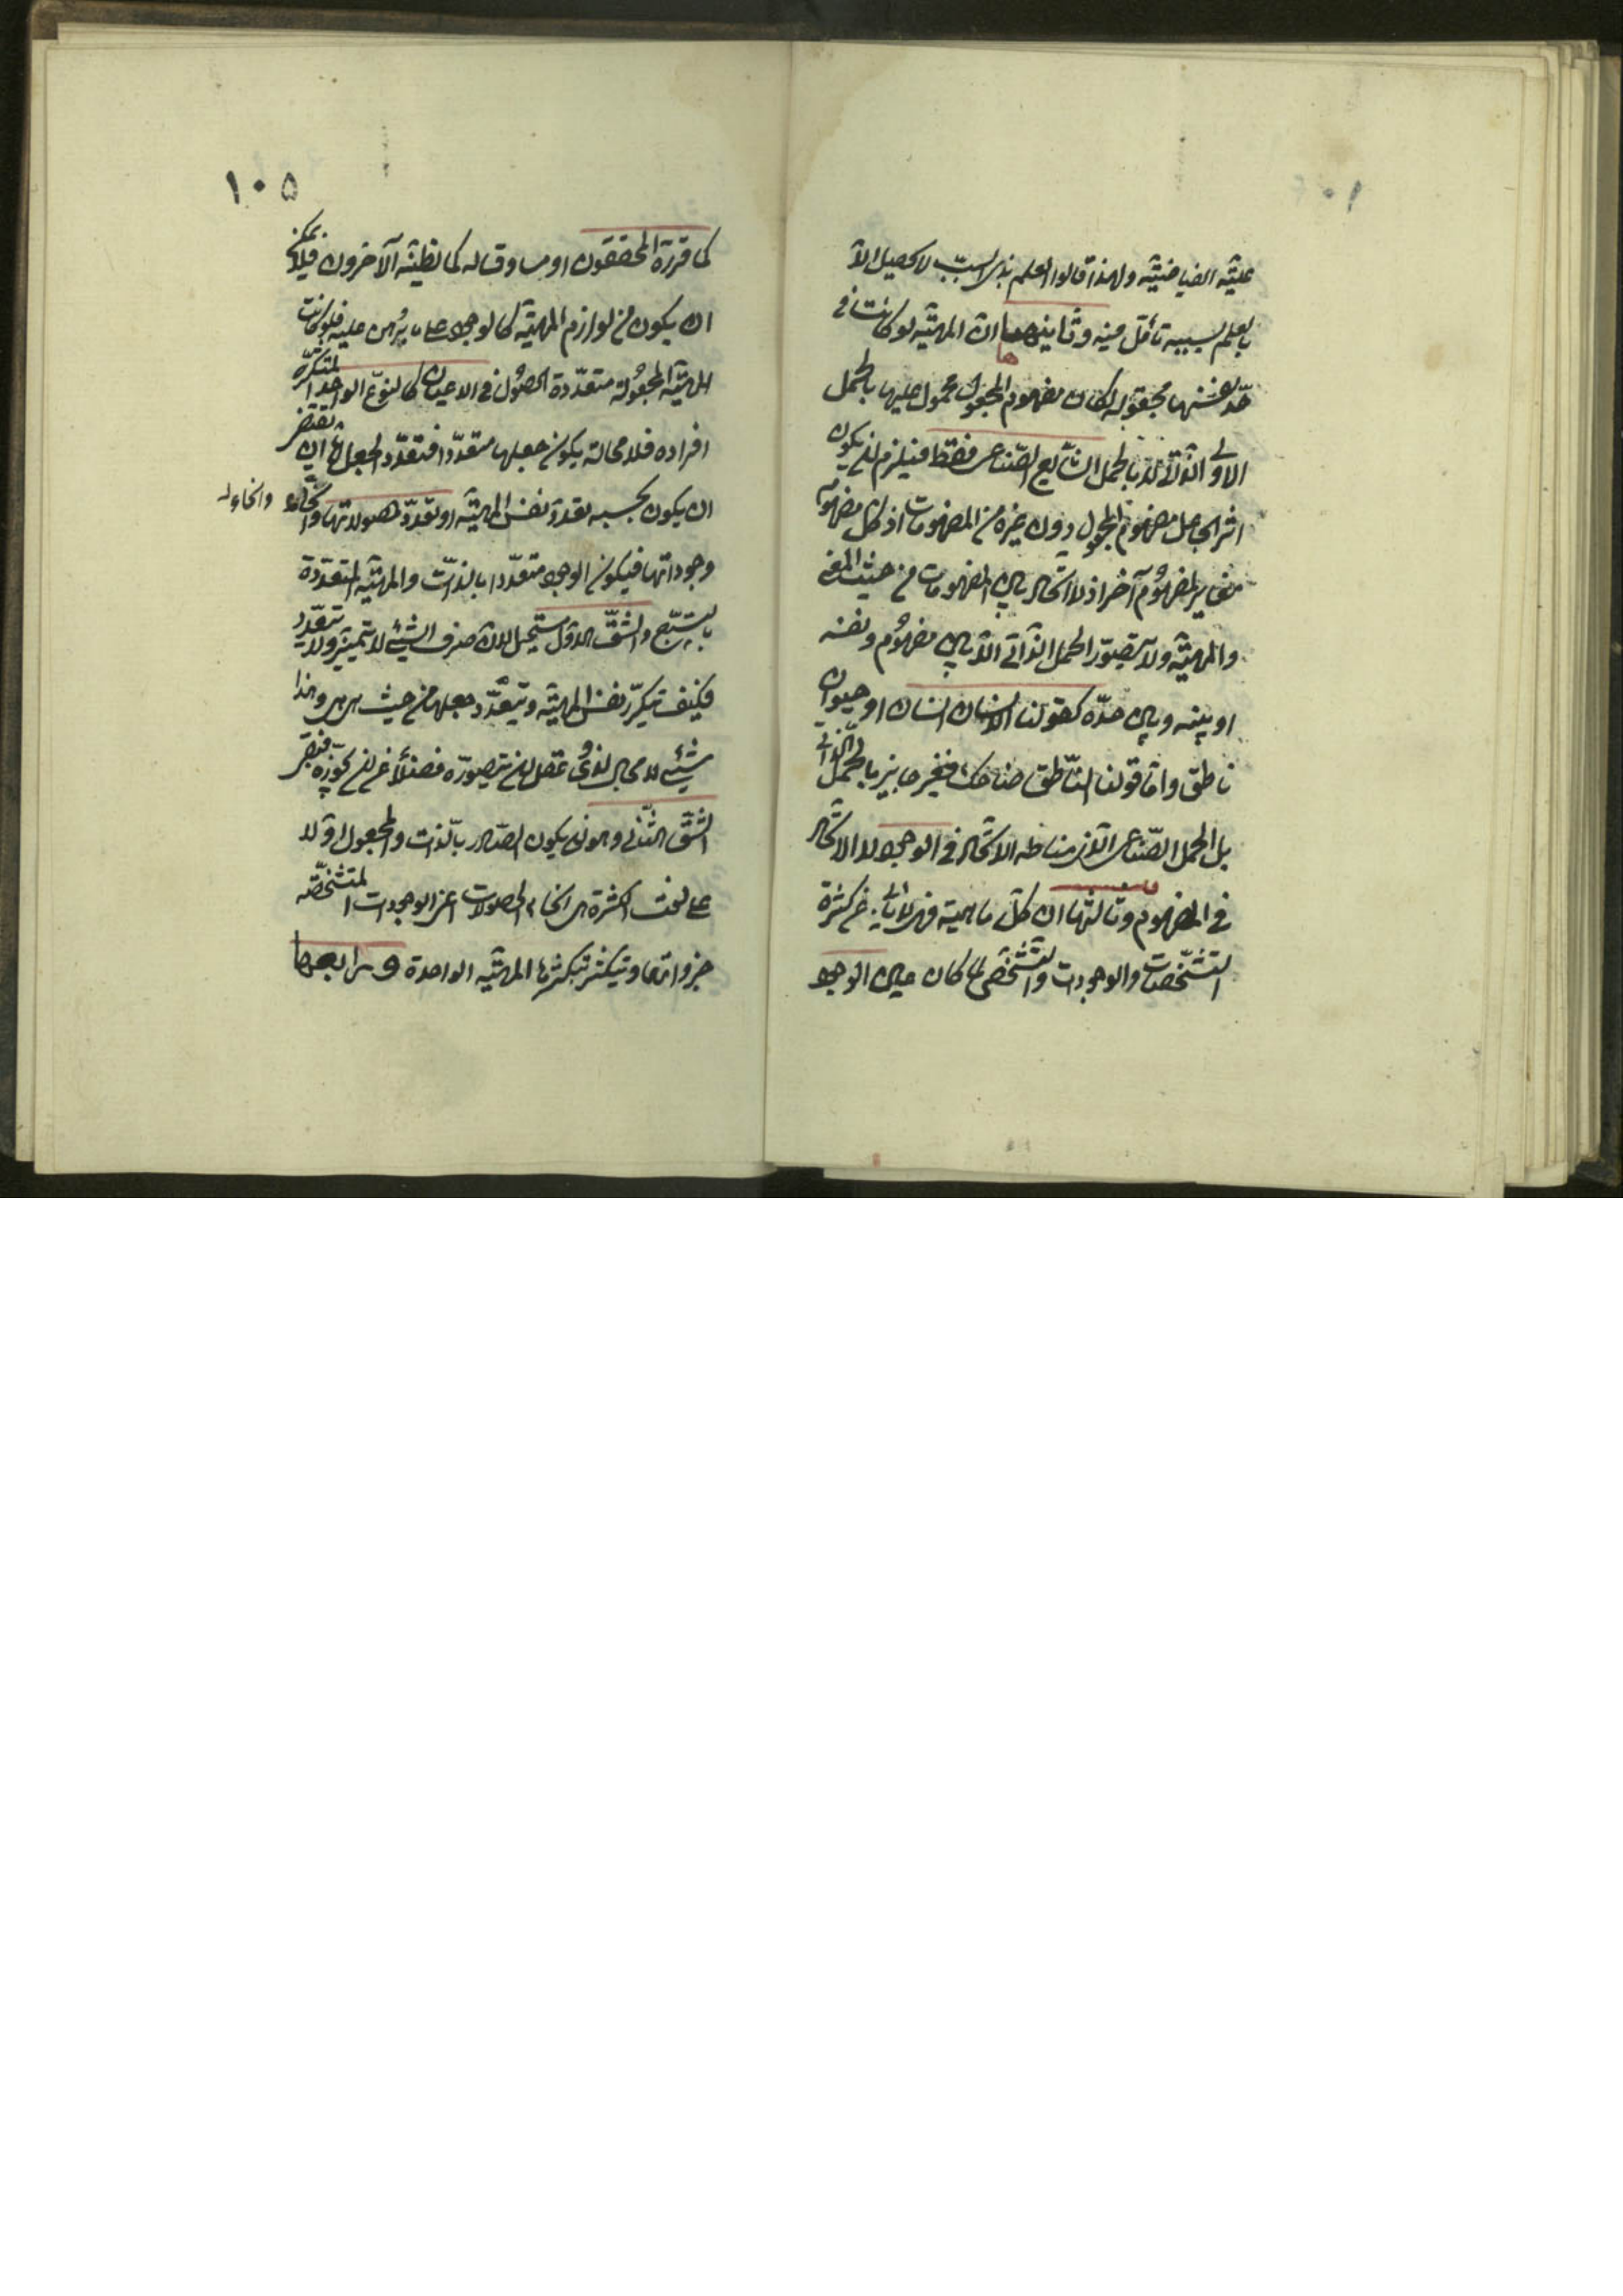 علتيه الفياضيته ولهذا قالوا العلم بذى السبب لا يحصل الا
بالعلم بسببه تأمل فيه وثانيتها ان المهيّة لو كانت فى
حدّ نفسها مجعولة لكان مفهوم المجعول محمول عليها بالحمل
الاولى الذاتى لا بالحمل الشايع الصناعى فقط فيلزم ان يكون
اثر الجاعل مفهوم المجعول دون غيره من المفهومات اذ كل مفهوم
مغاير لمفهوم آخر اذ لا اتحاد بين المفهومات من حيث المعنى
والمهيّة ولا يتصوّر الحمل الذاتى الا بين مفهوم ونفسه
او بينه وبين حدّه كقولنا الانسان انسان او حيوان
ناطق واما قولنا الناطق ضاحك فغير جايز بالحمل الذاتى
بل الحمل الصناعى الذى مناطه الاتحاد فى الوجود لا الاتحاد
فى المفهوم وثالثتها ان كل ماهية فهى لا تأبى عن كثرة
التشخّصات والوجودات والتشخّص لما كان عين الوجود
١٠٥
كما قررّه المحققون او مساوقا له كما يظنّه الآخرون فلا يمكن
ان يكون من لوازم المهيّة كالوجود على ما برهن عليه فلو كانت
المهيّة المجعولة متعدّدة الحصول فى الاعيان كالنوع الواحد المتكرّر
افراده فلا محالة يكون جعلها متعدّدا فتعدّد الجعل لها يقتضى
ان يكون بحسبه تعدّد نفس المهيّة او تعدّد حصولاتها وانحاء
وانحاء
وجوداتها فيكون الوجود متعدّدا بالذات والمهيّة المتعدّدة
بالتبع والشقّ الاول مستحيل لان صرف الشىء لا يتميز ولا يتعدّد
فكيف يتكرّر نفس المهيّة ويتعدّد جعلها من حيث هى هى وهذا
شىء لا مجال لذى عقل ان يتصورّه فضلاً عن ان يجوّزه فبقى
الشقّ الثانى وهو ان يكون الصادر بالذات والمجعول اولا
على نعت الكثرة هى انحاء الحصولات اعنى الوجودات المتشخّصة
بذواتها ويتكثر بتكثرها المهيّة الواحدة ورابعها